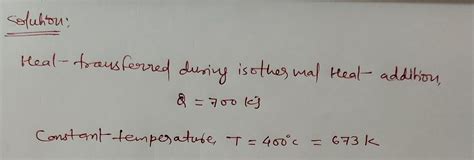 Solution:
Heat-transferred during isothermal Heat addition,
Q = 700 kJ
Constant temperature, T = 400°c = 673 k